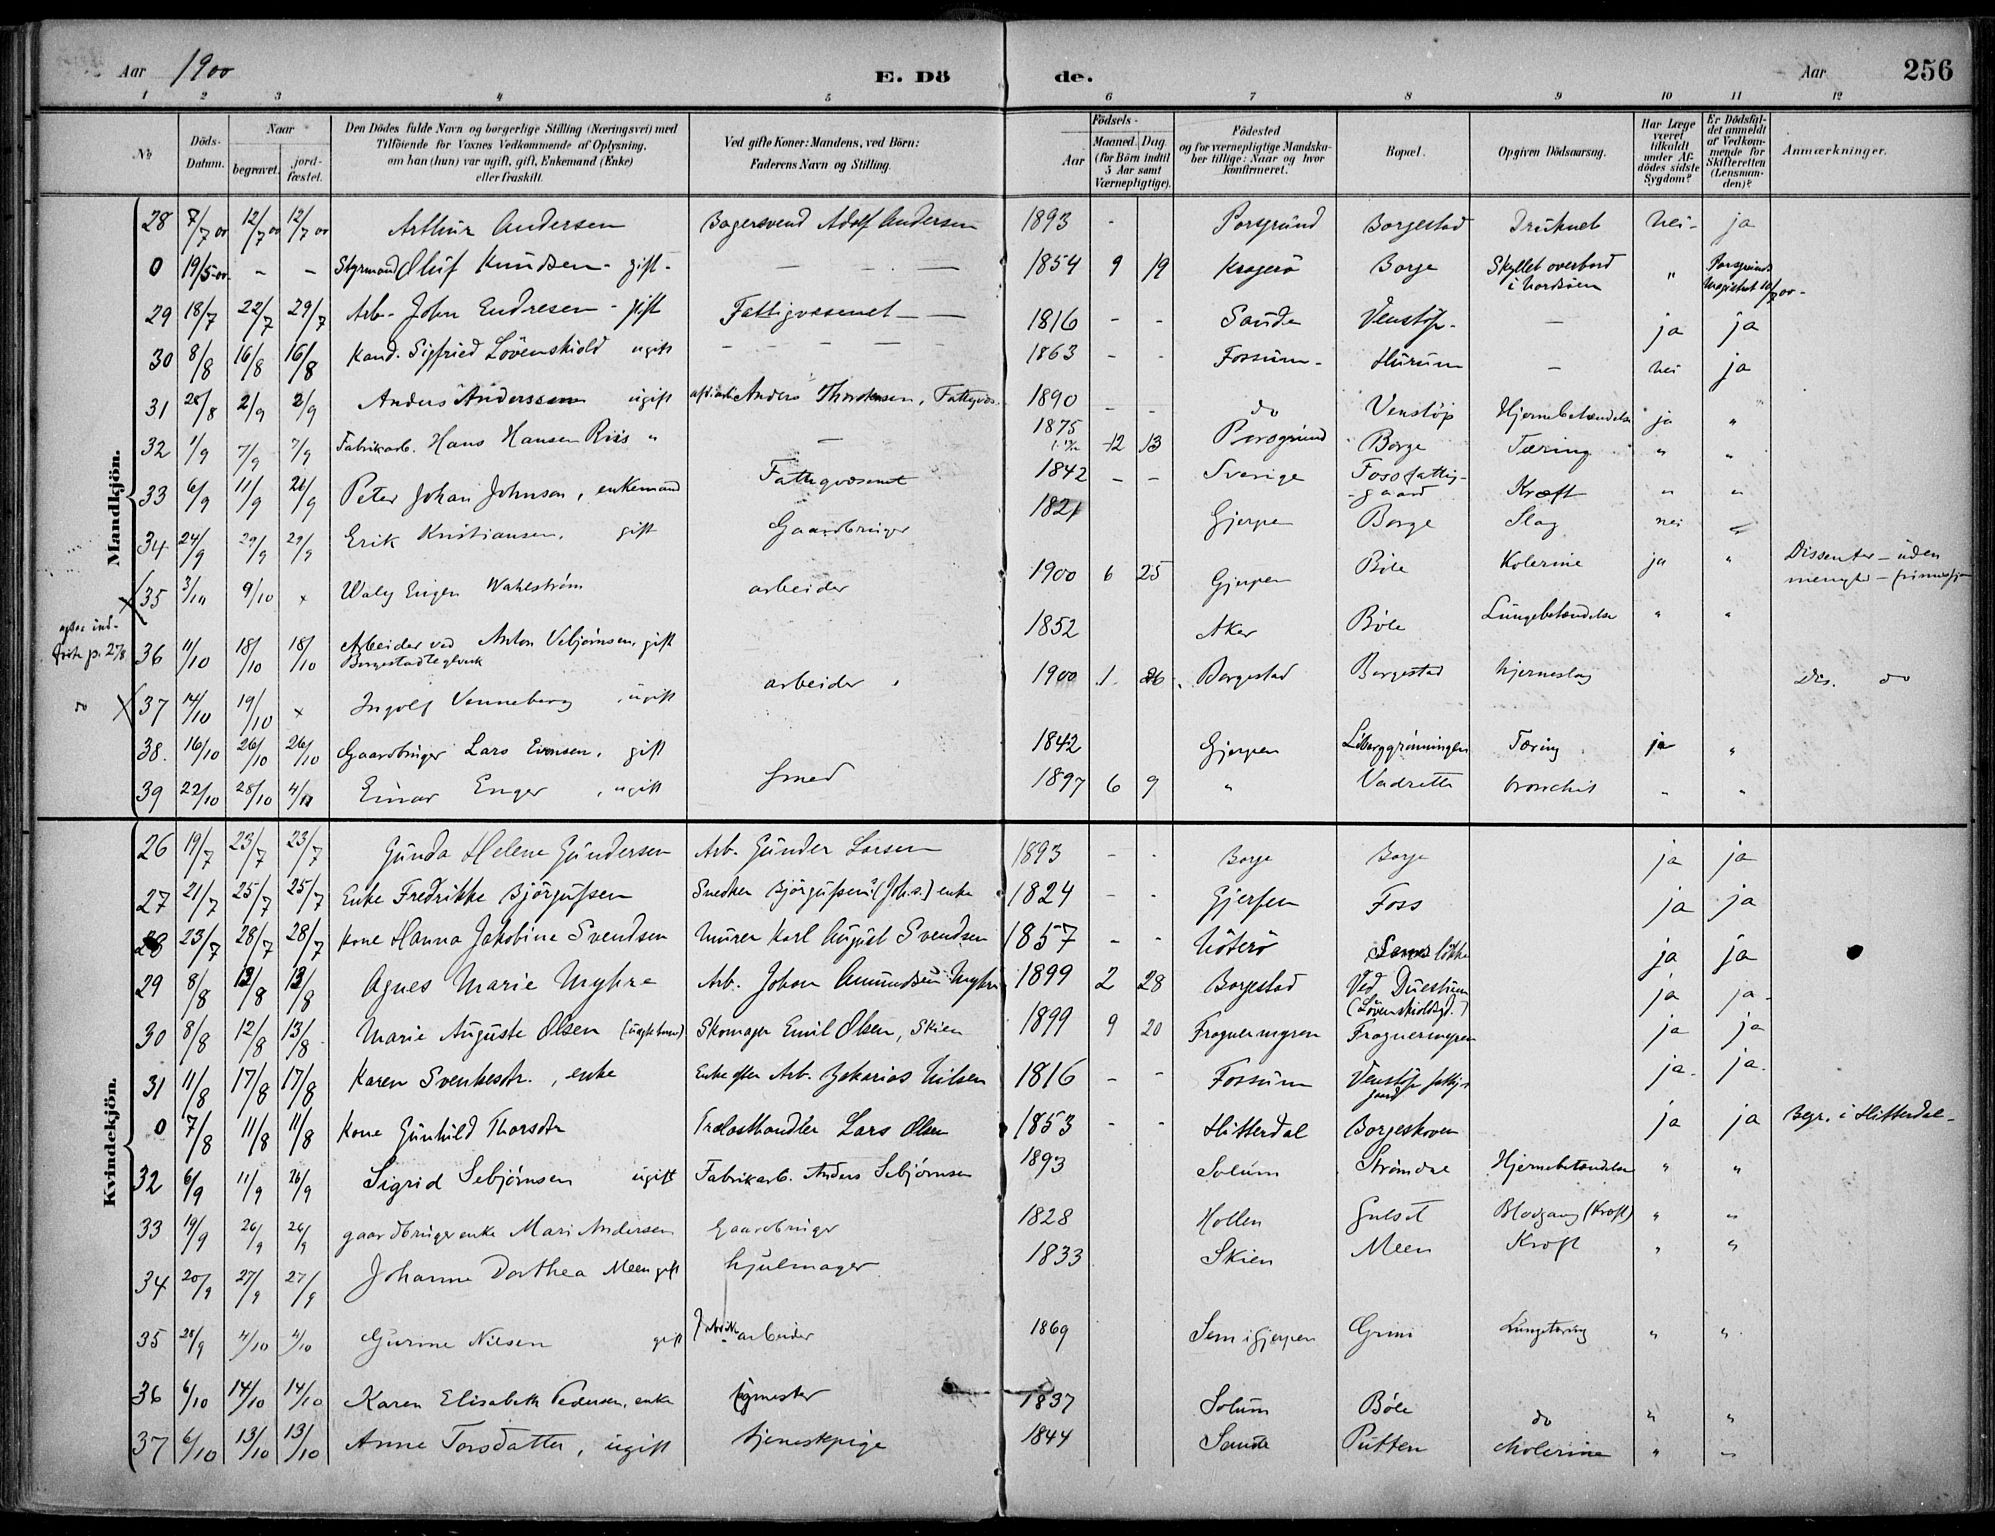 Aar 1900 E. Dö de. Aar 256
1 2 3 4 5 6 7 8 9 10 11 12
No
Döds-Datum.
Naar
begravet.
jord-fæstet.
Den Dödes fulde Navn og borgerlige Stilling (Næringsvei) med
Tilföiende for Voxnes Vedkommende af Oplysning,
om han (hun) var ugift, gift, Enkemand (Enke)
eller fraskilt.
Ved gifte Koner: Mandens, ved Börn:
Faderens Navn og Stilling.
Födsels-
Aar
Maaned. Dag
(for Börn indtil
5 Aar samt
Værnepligtige).
Födested
og for værnepligtige Mandska-
ber tillige: Naar og hvor
konfirmeret.
Bopæl.
Opgiven Dödsaarsag.
Har Læge
været
tilkaldt
under Af-
dödes sidste
Sygdom?
Er Dödsfal-
det anmeldt
af Vedkom-
mende for
Skifteretten
(Lensman-
den)?
Anmærkninger.
Mandkjön.
28 7/7 00 12/7 00 12/7 00 Arthur Andersen Bagersvend Adolf Andersen 1893 - Porsgrund Borgestad Druknet nei - ja
0 19/5 00 - - Styrmand Oluf Knudsen - gift - - - - 1854 9 19 Kragerö Borge Skyllet overbord i Nordsöen " Porsgrunds Magistrat 10/7 00 -
29 18/7 22/7 29/7 Arb. John Endresen - gift Fattigvæsenet - - 1816 - - Saude Venstöp - - ja ja
30 8/8 16/8 16/8 Kand. Sigfried Lövenskiold ugift - - - - 1863 - - Fossum - Hurum - nei ja
31 28/8 2/9 2/9 Anders Anderssen ugift Anders Thorstensen, Fattigvæs. 1890 - - do Venstöp Hjernebetændelse ja "
32 1/9 7/9 7/9 Fabrikarb. Hans Hansen Riis " - 1875 12 13 Porsgrund Borge Tæring " "
33 6/9 11/9 26/9 Peter Johan Johnson, enkemand Fattigvæsenet 1842 - - Sverige Foss fattig-gaard Kræft " "
34 24/9 29/9 29/9 Erik Kristiansen, gift Gaardbruger 1821 Gjerpen Borge Slag nei "
35 3/10 9/10 x Waly Eugen Wahlström arbeider 1900 6 25 Gjerpen Böle Kolerine ja " Dissenter - uden
36 11/10 18/10 18/10 Arbeider ved Borgestad teglverk Anton Vebjörnsen, gift 1852 Aker Böle Lungebetændelse " "
37 14/10 19/10 x Ingolf Venneberg ugift arbeider 1900 1 26 Borgestad Borgestad hjerneslag Dis. do
38. 16/10 26/10 26/10 Gaardbruger Lars Evensen, gift 1842 Gjerpen Tæring ja "
39 22/10 28/10 4/11 Einar Enger, ugift Smed 1897 6 9 " Vadrette bronchit " "
Kvindekjön.
26 19/7 23/7 23/7 Gunda Helene Gundersen Arb. Gunder Larsen 1893 - - Borge Borge ja ja
27 21/7 25/7 25/7 Enke Fredrikke Björgufsen Snedker Björgufsens (Joh.s.) enke 1824 - - Gjerpen Foss ja ja
28 23/7 28/7 28/7 Kone Hanna Jakobine Svendsen Murer Karl August Svendsen 1857 - - Nöterö ja ja
29 8/8 13/8 13/8 Agnes Marie Myhre Arb. Johan Amundsen Myhre 1899 2 28 Borgestad Ved Duestuen (Lövenskioldsgd.) ja ja -
30 8/8 12/8 13/8 Marie Auguste Olsen Skomager Emil Olsen, Skien 1899 9 20 Frognermyren Frognermyren ja ja
31 11/8 17/8 17/8 Karen Svenkesdtr., enke Enke efter Arb. Zakarias Nilsen 1816 - - Fossum Venstöp fattiggaard ja - ja -
0 7/8 11/8 11/8 Kone Gunhild Thorsdtr Trælasthandler Lars Olsen 1853 - - Hitterdal Borgeskoven ja ja Begr. i Hitterdal -
32 6/9 11/9 26/9 Sigrid Sebjörnsen ugift Fabrikarb. Anders Sebjörnsen 1893 Solum Strömdal Hjernebetændelse " "
33 19/9 26/9 26/9 gaardbrugerenke Mari Andersen Gaardbruger 1828 Hollen Gulset Blodgang (Kræft) " "
34 20/9 27/9 27/9 Johanne Dorthea Meen gift hjulmager 1833 Skien Meen Kræft " "
35 28/9 4/10 4/10 Gurine Nilsen gift Fabrikarbeider 1869 Sem i Gjerpen Grini Lungetæring " "
36 6/10 14/10 14/10 Karen Elisabeth Pedersen, enke 1837 Solum Böle do " "
37 6/10 13/10 13/10 Anne Torsdatter, ugift tjenestepige 1844 Saude Putten cholerine " "